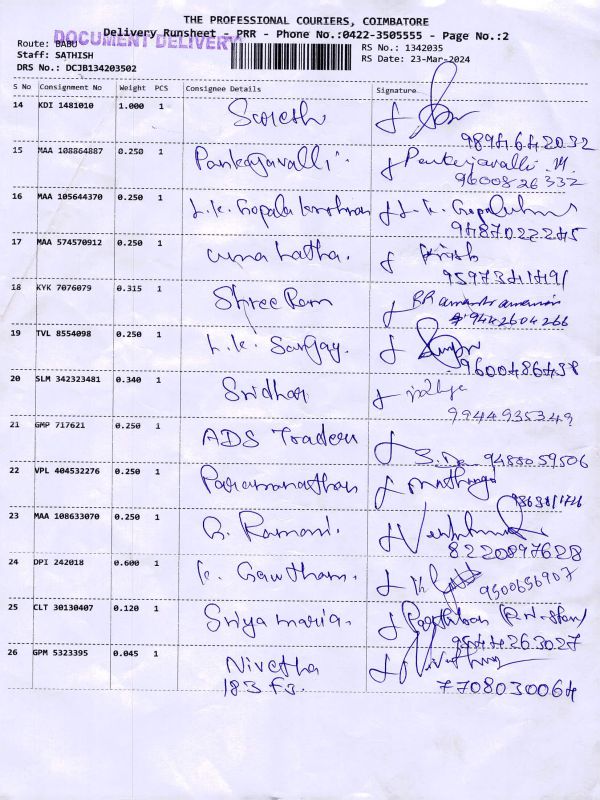 THE PROFESSIONAL COURIERS, COIMBATORE
Delivery Runsheet - PRR - Phone No.:0422-3505555 - Page No.:2
DOCUMENT DELIVERY
Route: BABU
Staff: SATHISH
DRS No: DCJB134203502
RS No: 1342035
RS Date: 23-Mar-2024
S No Consignment No Weight PCS Consignee Details Signature
14 KDI 1481010 1.000 1 Suresh
9894642032
15 MAA 108864887 0.250 1 Pankajavalli. Pankajavalli. M.
9600826332
16 MAA 105644370 0.250 1 L.K. Gopala krishnan L. K.
9487022245
17 MAA 574570912 0.250 1 uma Latha. Krish
9597341491
18 KYK 7076079 0.315 1 Shree Ram
9442604266
19 TVL 8554098 0.250 1 L.K. Sanjay.
9600486438
20 SLM 342323481 0.340 1 Sridhar
9944935349
21 GMP 717621 0.250 1 ADS Traders
9488059506
22 VPL 404532276 0.250 1 Paramanathan
23 MAA 108633070 0.250 1 G. Ramani.
8220897628
24 DPI 242018 0.600 1 K. Gowtham.
9500656907
25 CLT 30130407 0.120 1 Sriya maria.
9544263027
26 GPM 5323395 0.045 1 Nivetha
183 F3. 7708030064